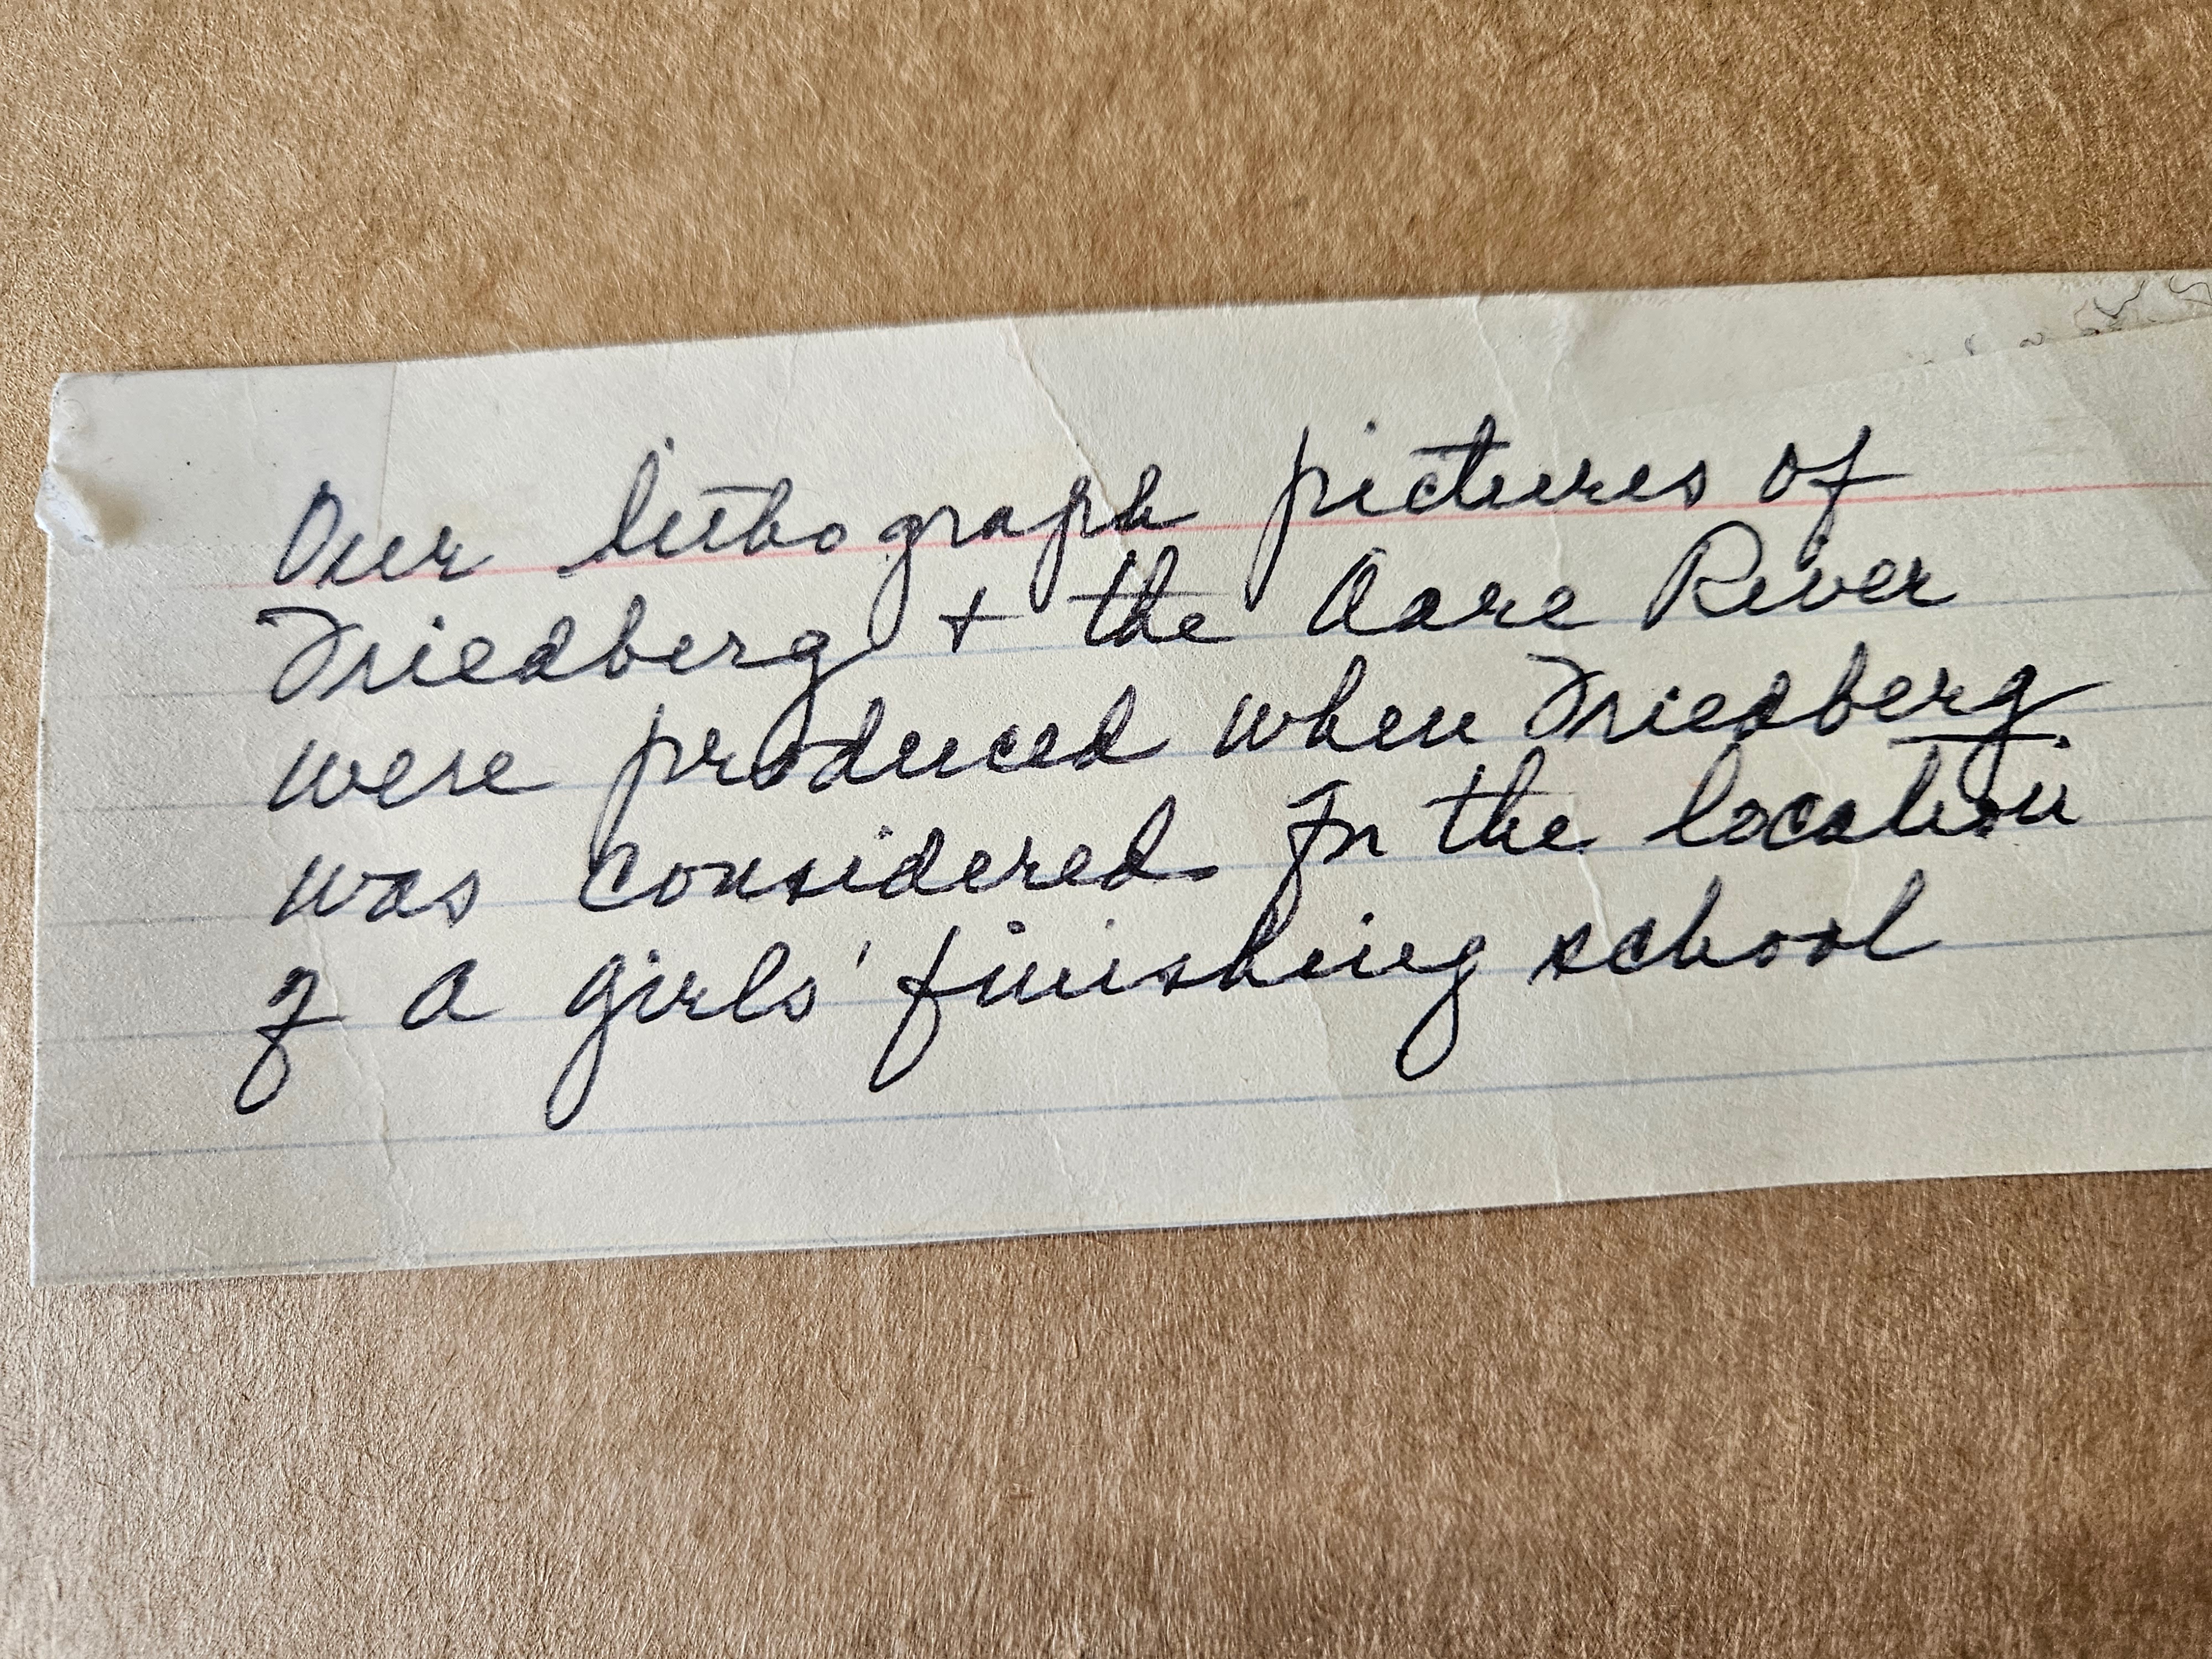 Our lithograph pictures of
Friedberg + the Aare River
were produced when Friedberg
was considered for the location
of a girls' finishing school